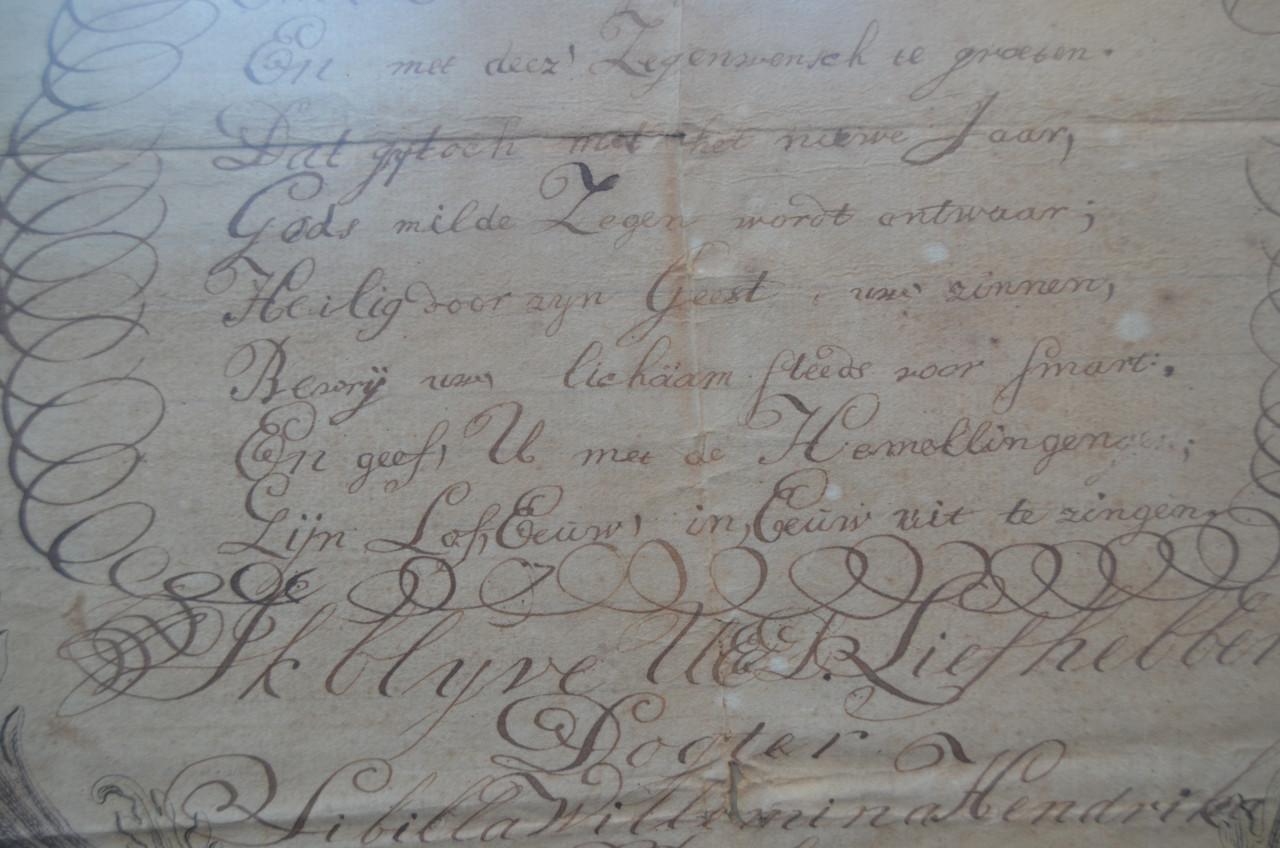 En met deez' Zegenwensch te groeten.
Dat gy toch met het nieuwe Jaar,
Gods milde Zegen wordt ontwaar;
Heilig door zyn Geest, uw' zinnen,
Bevrÿ uw, lichäam steeds voor smart:,
En geef, U met de Hemellingen;
Zijn Lof, Eeuw, in, Eeuw uit te zingen.
Ik blyve UEE. Liefhebben
Dogter
Sibilla Willemina Hendrika